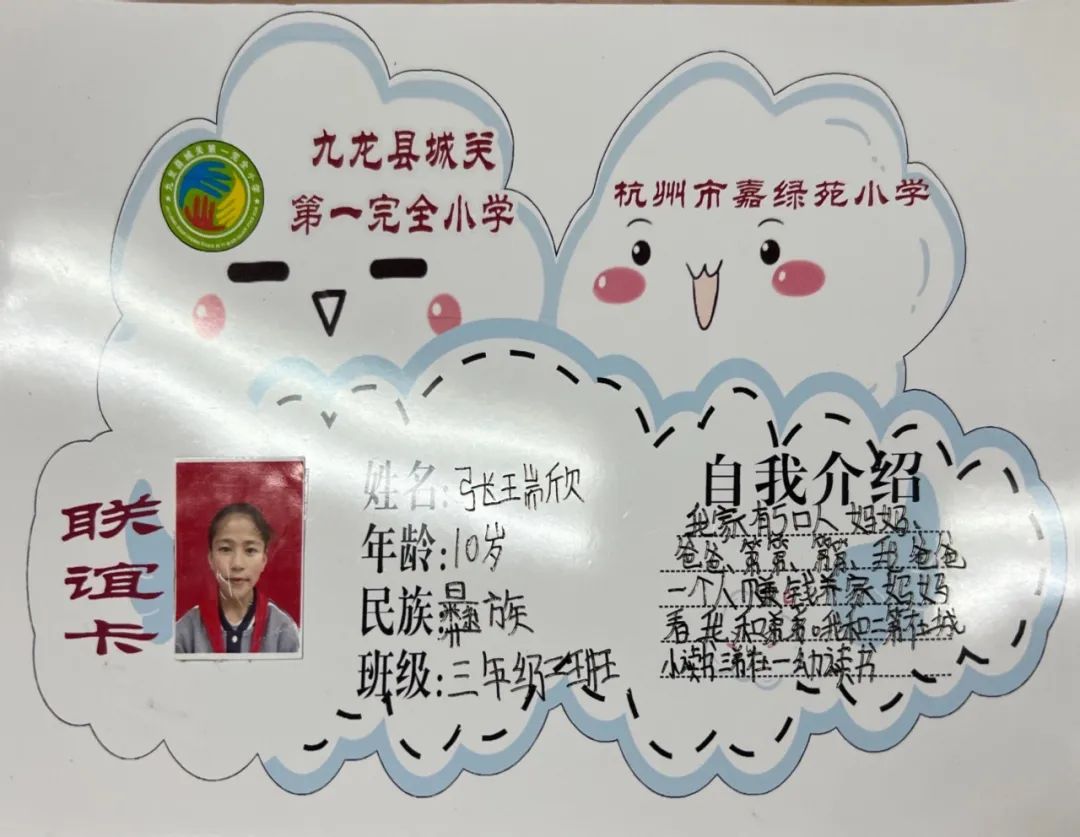 九龙县城关
第一完全小学
九龙县城关第一完全小学
杭州市嘉绿苑小学
联谊卡
姓名:张王耑欣
年龄:10岁
民族:彝族
班级:三年级三班
自我介绍
我家有5口人 妈妈、
爸爸、弟弟、弟弟、我 爸爸
一个人赚钱养家 妈妈
看我和弟弟。我和二弟在城
小读书三弟在一幼读书